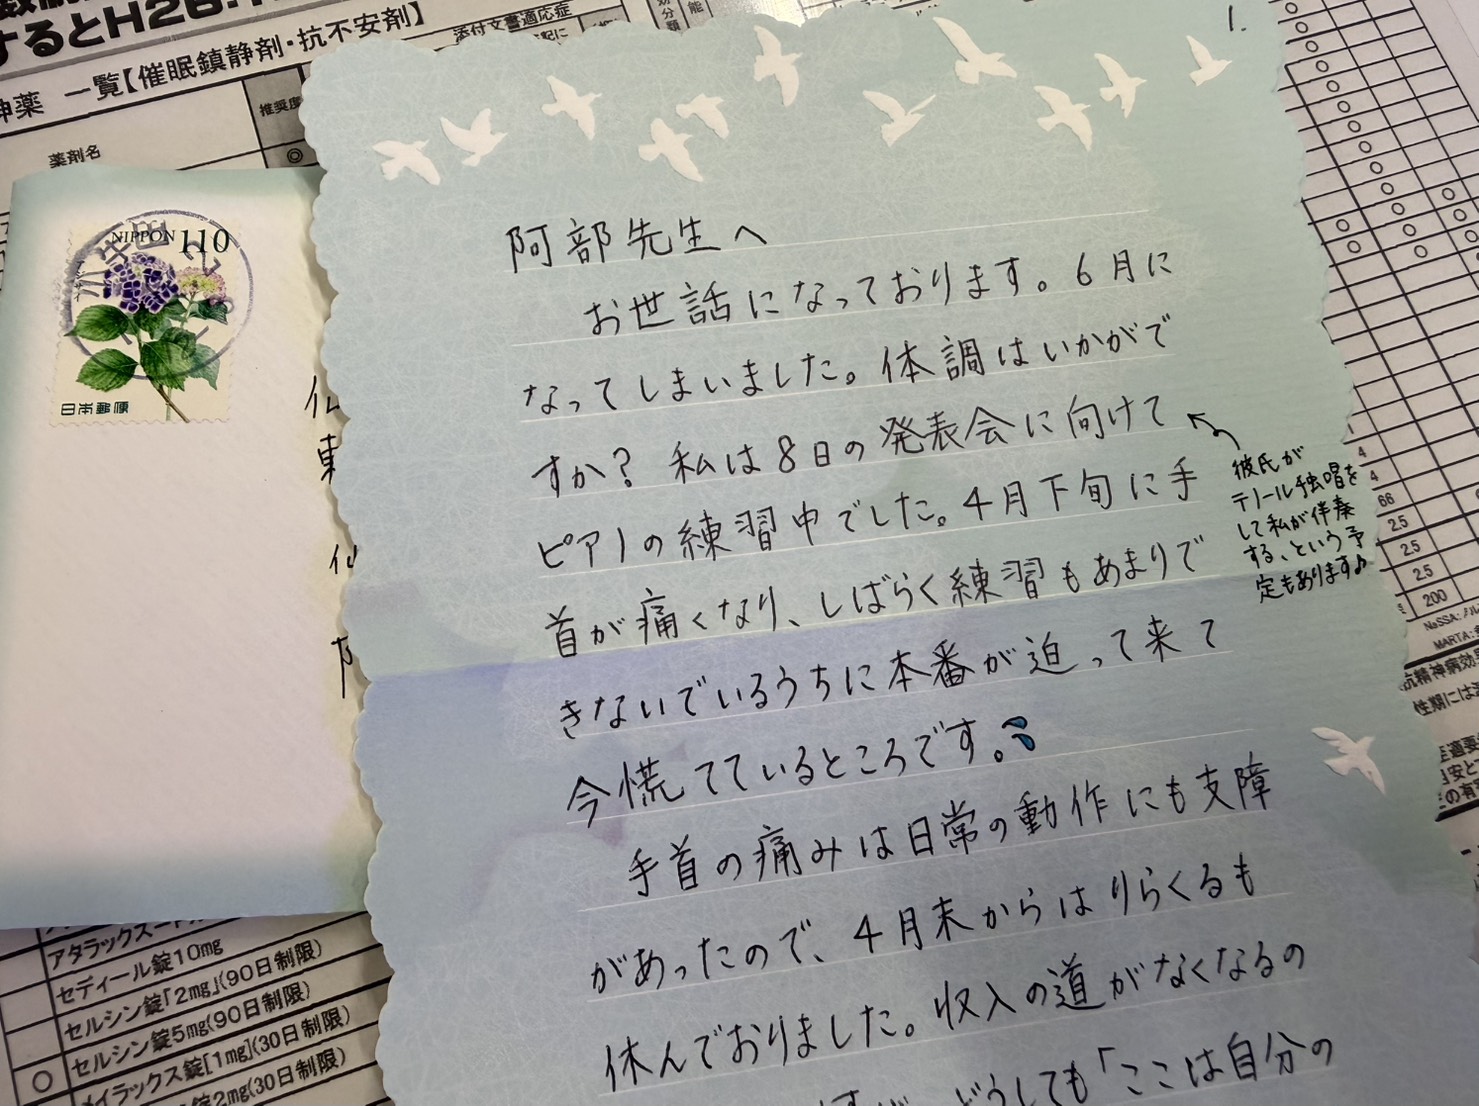 するとH26.
神薬 一覧【催眠鎮静剤・抗不安剤】
添付文書適応症
薬剤名
推奨度
◎
NIPPON 110
日本郵便
1.
阿部先生へ
お世話になっております。6月に
なってしまいました。体調はいかがで
すか? 私は8日の発表会に向けて
ピアノの練習中でした。4月下旬に手
首が痛くなり、しばらく練習もあまりで
きないでいるうちに本番が迫って来て
今慌てているところです。
手首の痛みは日常の動作にも支障
があったので、4月末からはりらくるも
休んでおりました。収入の道がなくなるの
どうしても「ここは自分の
彼氏が
テノール独唱を
して私が伴奏
する、という予
定もあります♪
アタラックス
セディール錠10mg
セルシン錠「2mg」(90日制限)
セルシン錠5mg(90日制限)
メイラックス錠[1mg](30日制限)
錠2mg(30日制限)
4
4
66
2.5
2.5
2.5
200
NaSSA:
MARTA:
抗精神病効
性期には